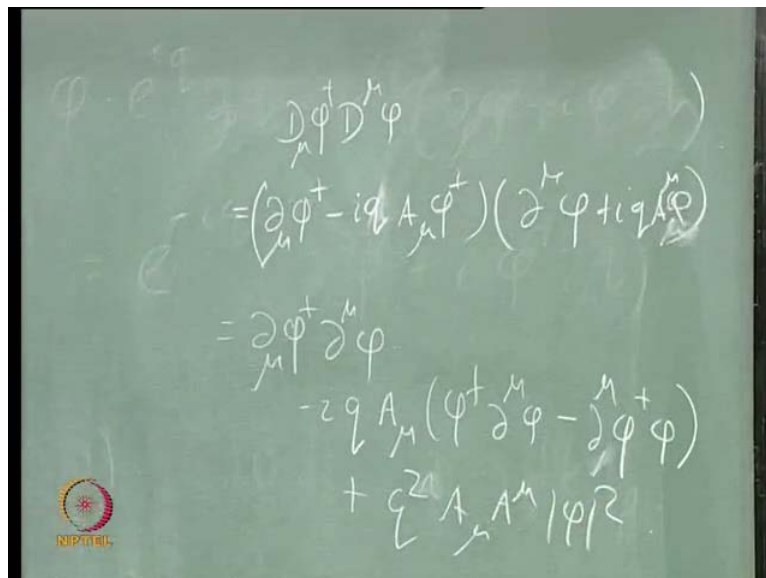 D_μ φ† D^μ φ
= (∂_μ φ† - iq A_μ φ†)(∂^μ φ + iq A^μ φ)
= ∂_μ φ† ∂^μ φ
- iq A_μ (φ† ∂^μ φ - ∂^μ φ† φ)
+ q² A_μ A^μ |φ|²
NPTEL